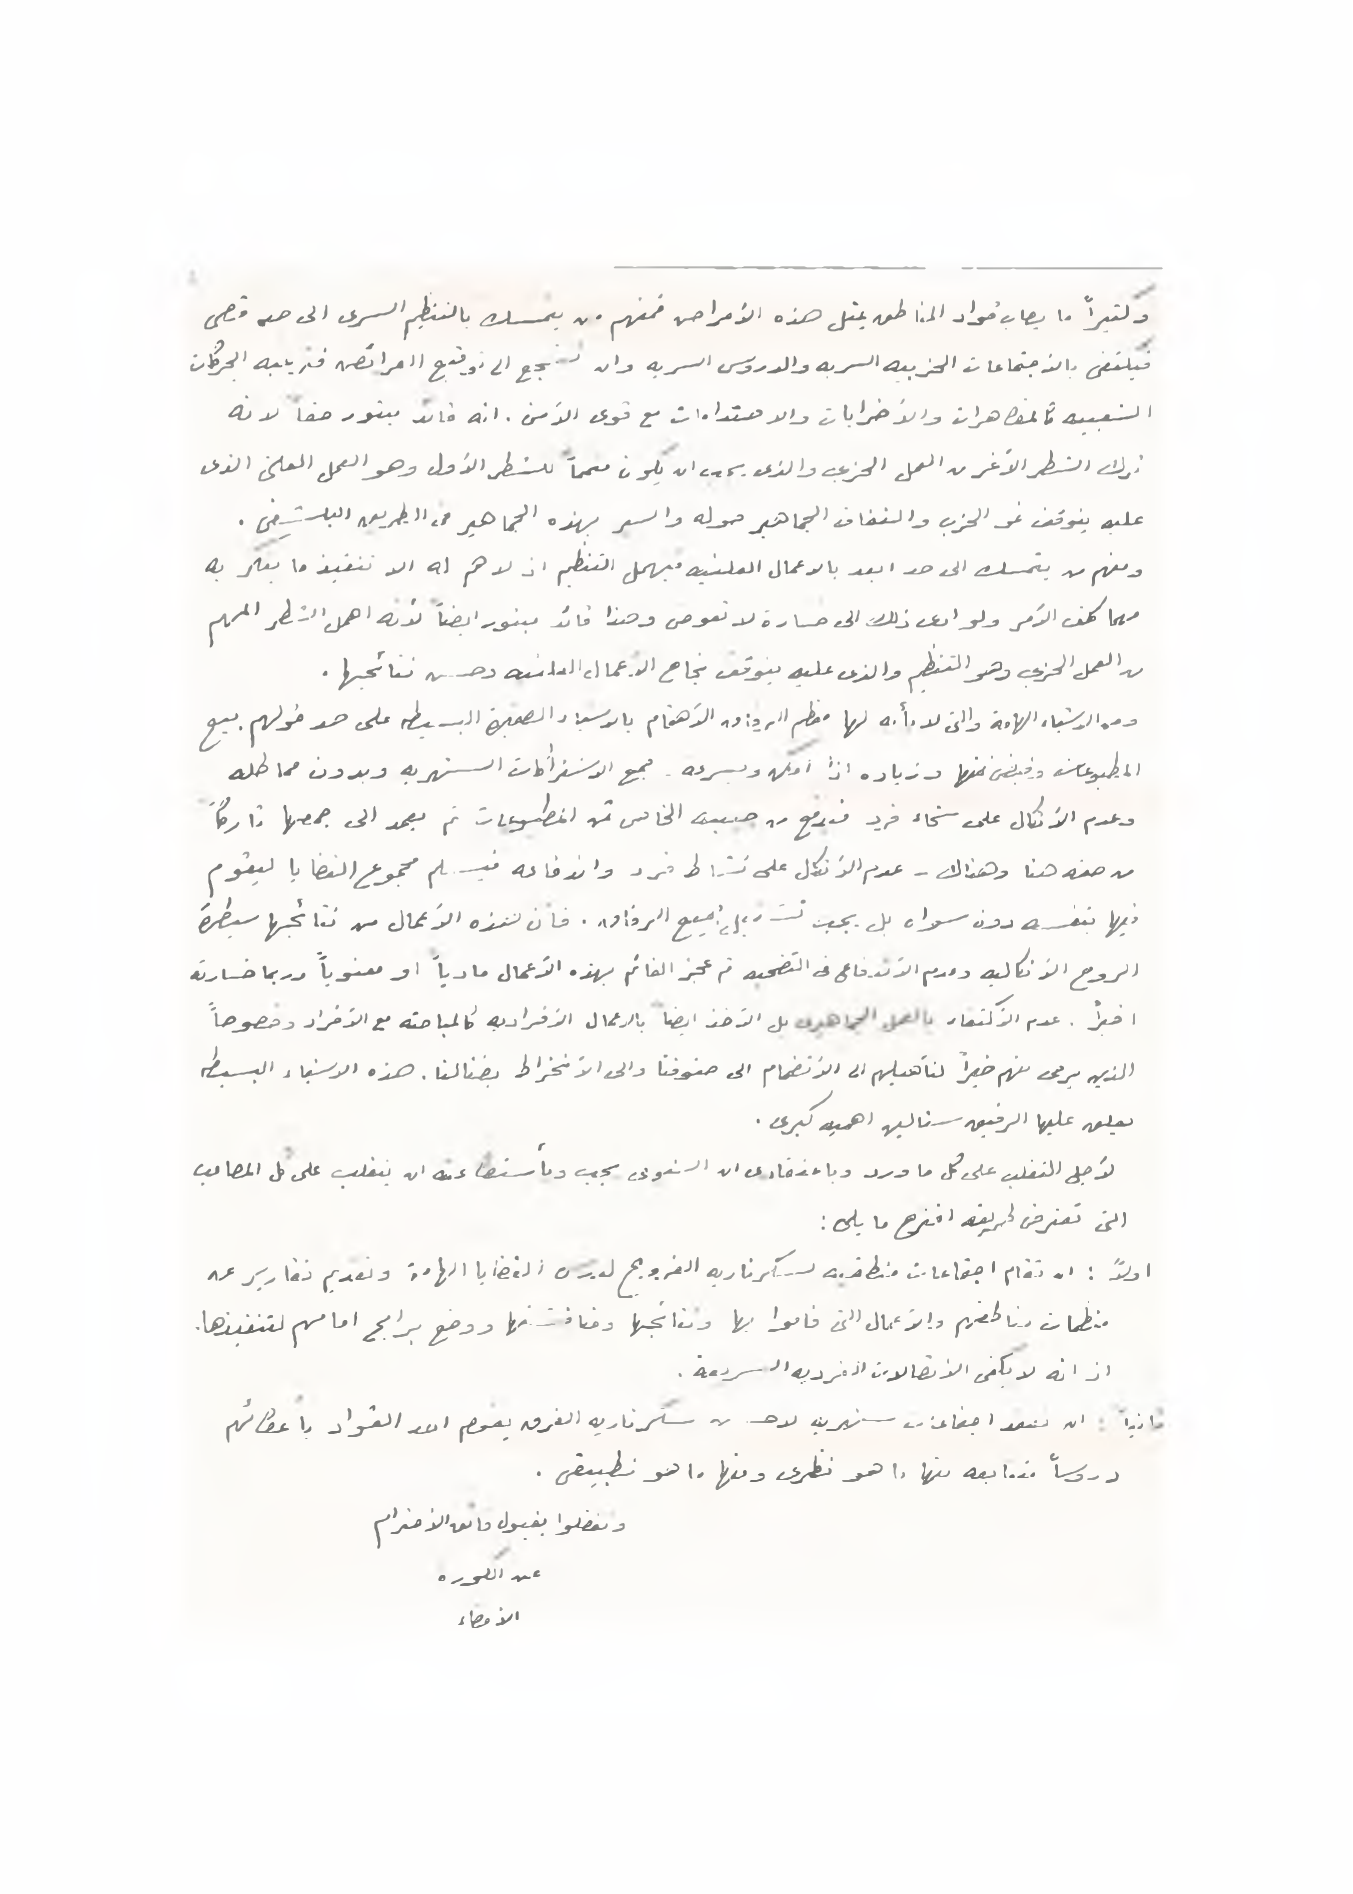 وكثيراً ما يصاب قواد المناطق بمثل هذه الأمراض فمنهم من يتمسك بالتنظيم السرى الى حد قصى
فيكتفى بالاجتماعات الحزبيه السريه والدروس السريه وان تشجع الى توقيع العرائض فتريبه الحركات
الشعبيه كالمظاهرات والأضرابات والاصتدامات مع قوى الأمن. انه قائد مبتور حقاً لانه
ترك الشطر الأخر من العمل الحزبى والذى يجب ان يكون متمماً للشطر الأول وهو العمل العلنى الذى
عليه يتوقف نمو الحزب والتفاف الجماهير حوله والسير بهذه الجماهير فى الطريق البلشفى.
ومنهم من يتمسك الى حد ابعد بالاعمال العلنيه فيهمل التنظيم اذ لا هم له الا تنفيذ ما يفكر به
مهما كلف الأمر ولو ادى ذلك الى خسارة لا تعوض وهذا قائد مبتور ايضاً لأنه اهمل الشطر المهم
من العمل الحزبى وهو التنظيم والذى عليه يتوقف نجاح الأعمال العلنيه وحسن نتائجها.
ومن الاشياء الهامة والتى لا يأبه لها معظم الرفاق الأهتمام بالاشياء الصغيرة البسيطه على حد قولهم. بيع
المطبوعات وقبض ثمنها وزياده اذا أمكن وبسرعه. جمع الاشتراكات الشهريه وبدون مماطله
وعدم الأتكال على سخاء فرد فيدفع من جيبه الخاص ثمن المطبوعات ثم يعمد الى جمعها تاركاً
من حقه هنا وهناك - عدم الأتكال على نشاط فرد واندفاعه فيسلم مجموع القضايا ليقوم
فيها بنفسه دون سواه بل يجب تشغيل جميع الرفاق. فأن لهذه الأعمال من نتائجها سيطرة
الروح الأتكاليه وعدم الأندفاع فى التضحيه ثم عجز القائم بهذه الأعمال مادياً او معنوياً وربما خسارته
اخيراً. عدم الأكتفاء بالعمل الجماهيرى بل الأخذ ايضاً بالاعمال الأفراديه كالمباحثه مع الأفراد وخصوصاً
الذين يرجى منهم خيراً لتأهيلهم الى الأنضمام الى صفوفنا والى الأنخراط بنضالنا. هذه الاشياء البسيطه
يعلق عليها الرفيق ستالين اهميه كبرى.
لأجل التغلب على كل ما ورد وباعتقادى ان الشيوعى يجب وبأستطاعته ان يتغلب على كل المصاعب
التى تعترض طريقه اقترح ما يلى:
اولاً: ان تقام اجتماعات مناطقيه لسكرتاريه الفروع لدرس القضايا الهامة وتقديم تقارير عن
منظمات مناطقهم والأعمال التى قاموا بها ونتائجها ومناقشتها ووضع برامج امامهم لتنفيذها.
اذ انه لا يكفى الأتصالات الفرديه السريعة.
ثانياً: ان تعقد اجتماعات شهريه لسكرتاريه الفرق يقوم احد القواد بأعطائهم
دروساً متتابعه منها ما هو نظرى ومنها ما هو تطبيقى.
وتفضلوا بقبول فائق الأحترام
عن الكوره
الأمضاء